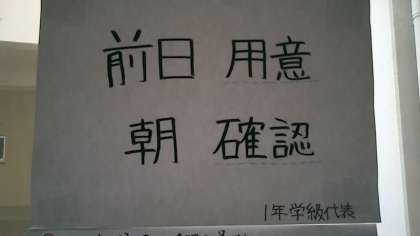 前日 用意
朝 確認
1年学級代表